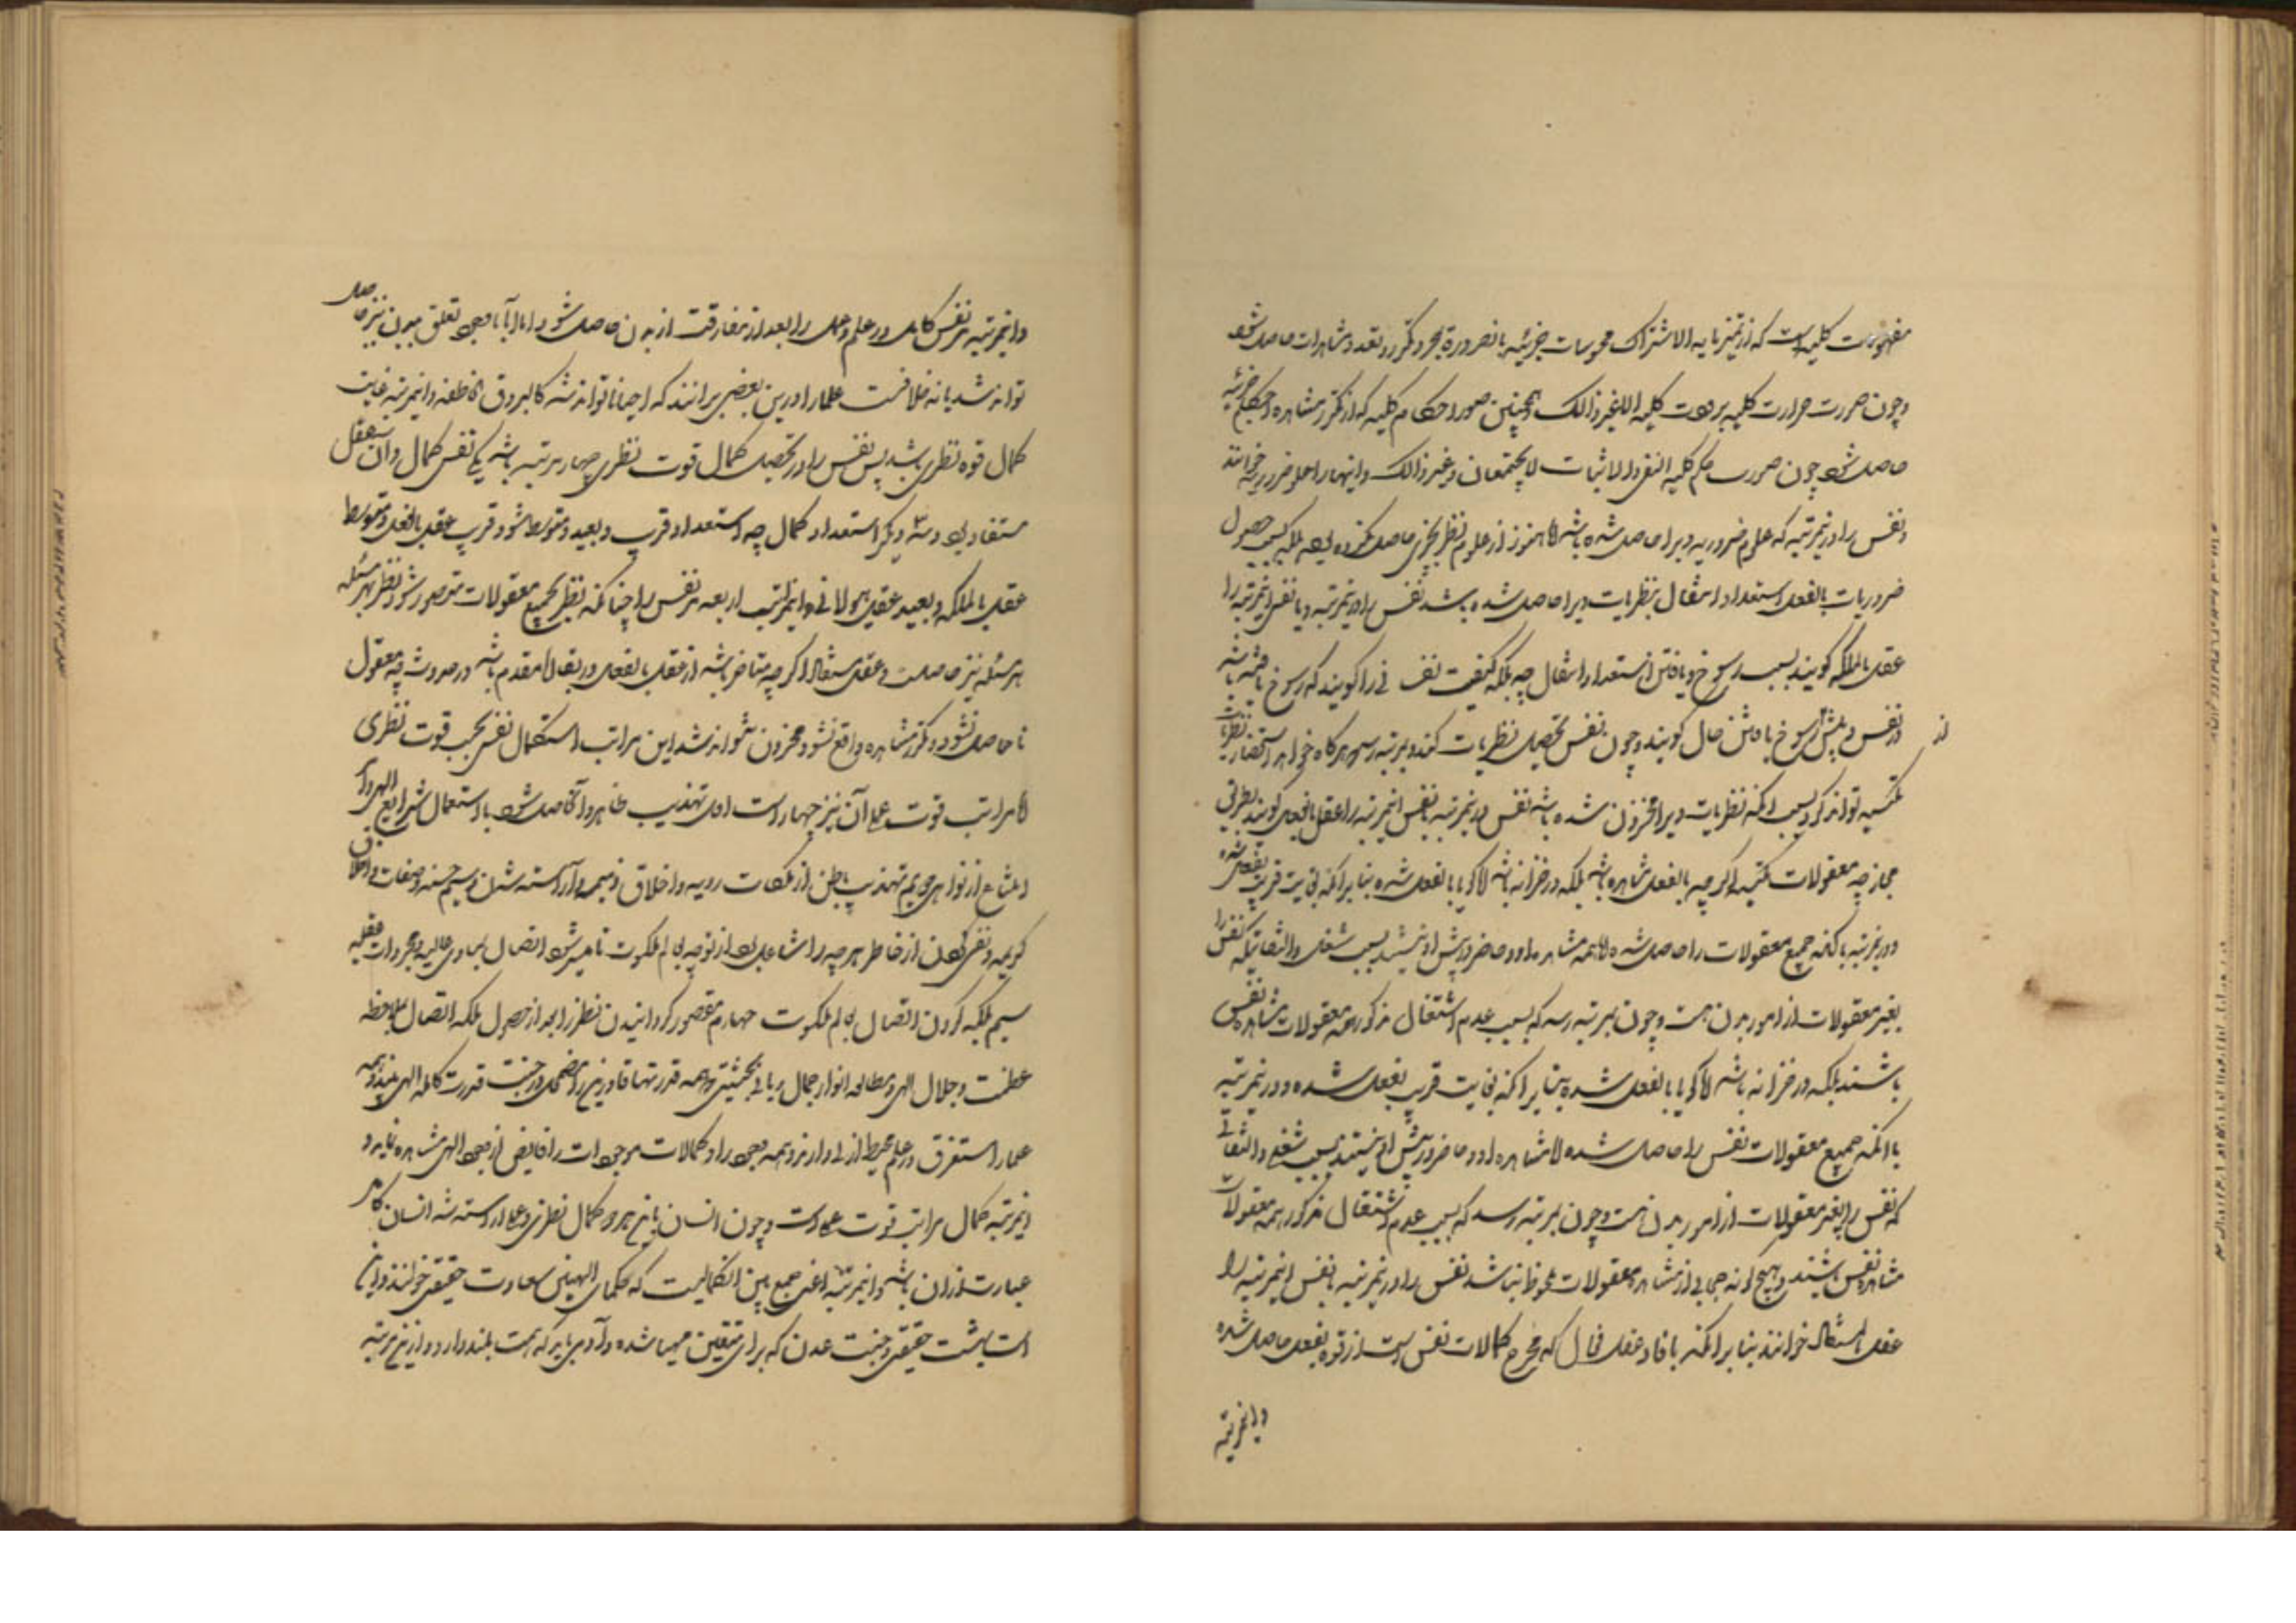 مفهومات کلیه است که از تمیز ما به الاشتراک محسوسات جزئیه بالضرورة بمجرد تکرر و تعدد مشاهدات حاصل شود
و چون صورت حرارت کلیه برودت کلیه الی غیر ذالک و همچنین صور احکام کلیه که از تکرر مشاهده احکام جزئیه
حاصل شود چون صورت حکم کلیه النفی و الاثبات لا یجتمعان و غیر ذالک و اینها را علوم ضروریه خوانند
و نفس را در اینمرتبه که علوم ضروریه ویرا حاصل شده باشد اما هنوز از علوم نظریه چیزی حاصل نکرده بود بلکه بسبب حصول
ضروریات بالفعل استعداد انتقال بنظریات ویرا حاصل شده باشد نفس را در اینمرتبه و یا نفس اینمرتبه را
عقل بالملکه گویند بسبب رسوخ و یافتن استعداد انتقال چه ملکه کیفیت نفسانی را گویند که رسوخ یافته باشد
در نفس و پیش از رسوخ یافتن حال گویند و چون نفس تحصیل نظریات کند و بمرتبه رسد هر گاه خواهد استحضار نظریات
مکتسبه تواند کرد بسبب آنکه نظریات ویرا مخزون شده باشد نفس در اینمرتبه یا نفس اینمرتبه را عقل بالفعل گویند بطریق
مجاز چه معقولات مکتسبه اگر چه بالفعل مشاهد نباشد بلکه در خزانه باشد اما گویا بالفعل شده بنا بر آنکه بغایت قریب بفعل شده
و در اینمرتبه با آنکه جمیع معقولات را حاصل شده اما همه مشاهد او و حاضر در پیش او نیستند بسبب شغل و التفاتیکه نفس را
بغیر معقولات از امور بدن هست و چون بمرتبه رسد که بسبب عدم اشتغال مذکور همه معقولات مشاهد نفس
باشند بلکه در خزانه باشد اما گویا بالفعل شده بنا بر آنکه بغایت قریب بفعل شده و در اینمرتبه
با آنکه جمیع معقولات نفس را حاصل شده اما مشاهد او و حاضر در پیش او نیستند بسبب شغلی و التفاتی
که نفس را بغیر معقولات از امور بدن هست و چون بمرتبه رسد که بسبب عدم اشتغال مذکور همه معقولات
مشاهد نفس باشند و بهیچگونه حجابی از مشاهده معقولات ملحوظ نباشد نفس را در اینمرتبه یا نفس اینمرتبه را
عقل مستفاد خوانند بنا بر آنکه بافاده عقل فعال که مخرج کمالات نفس است از قوه بفعل حاصل شده
و اینمرتبه
و اینمرتبه مر نفس کامل در علم و عمل را بعد از مفارقت از بدن حاصل شود اما آیا با وجود تعلق ببدن نیز حاصل
تواند شد یا نه خلافست علما را در این بعضی برانند که احیانا تواند شد کالبروق الخاطفه و اینمرتبه غایت
کمال قوه نظری باشد پس نفس را در تحصیل کمال قوت نظری چهار مرتبه باشد یکی نفس کمال و آن عقل
مستفاد بود و سه دیگر استعداد کمال چه استعداد قریب و بعید و متوسط شود قریب عقل بالفعل و متوسط
عقل بالملکه و بعید عقل هیولانی و این مراتب اربعه مر نفس را چنانکه نظر بجمیع معقولات متصور شود نظر بهر مسئله
هر مسئله نیز حاصلست و عقل مستفاد اگر چه متاخر باشد از عقل بالفعل در بقا اما مقدم باشد در حدوث چه معقول
تا حاصل نشود و تکرر مشاهده واقع نشود مخزون نتواند شد این مراتب استکمال نفس بحسب قوت نظری
اما مراتب قوت عملی آن نیز چهار است اول تهذیب ظاهر و آن حاصل شود باستعمال شرایع الهی و
امتناع از نواهی دویم تهذیب باطن از ملکات ردیه و اخلاق ذمیمه و آراسته شدن و سیم حسنه و صفات و اخلاق
کریمه و نفی کردن از خاطر هر چه را شاغل بود از توجه بعالم ملکوت تا میسر شود اتصال بمبادی عالیه و مجردات عقلیه
سیم ملکه کردن اتصال بعالم ملکوت چهارم مقصور گردانیدن نظر را بعد از حصول ملکه اتصال بملاحظه
عظمت و جلال الهی و مطالعه انوار جمال ربانی بحیثیتی که همه قدرتها قادرین را مضمحل در جنب قدرت کامله الهی بیند و همه
علما را مستغرق در علم محیط ازلی او و همه وجود و کمالات موجودات را فایض از وجود الهی مشاهده نماید و
اینمرتبه کمال مراتب قوت عملی است و چون انسان باین هر دو کمال نظری و عملی آراسته شد انسان کامل
عبارت از آن باشد و اینمرتبه اعنی جمع بین الکمالین است که حکمای الهیین سعادت حقیقی خوانند و این
است بهشت حقیقی و جنت عدن که برای متقین مهیا شده و آدمی باید که همت بلند دارد و از این مرتبه